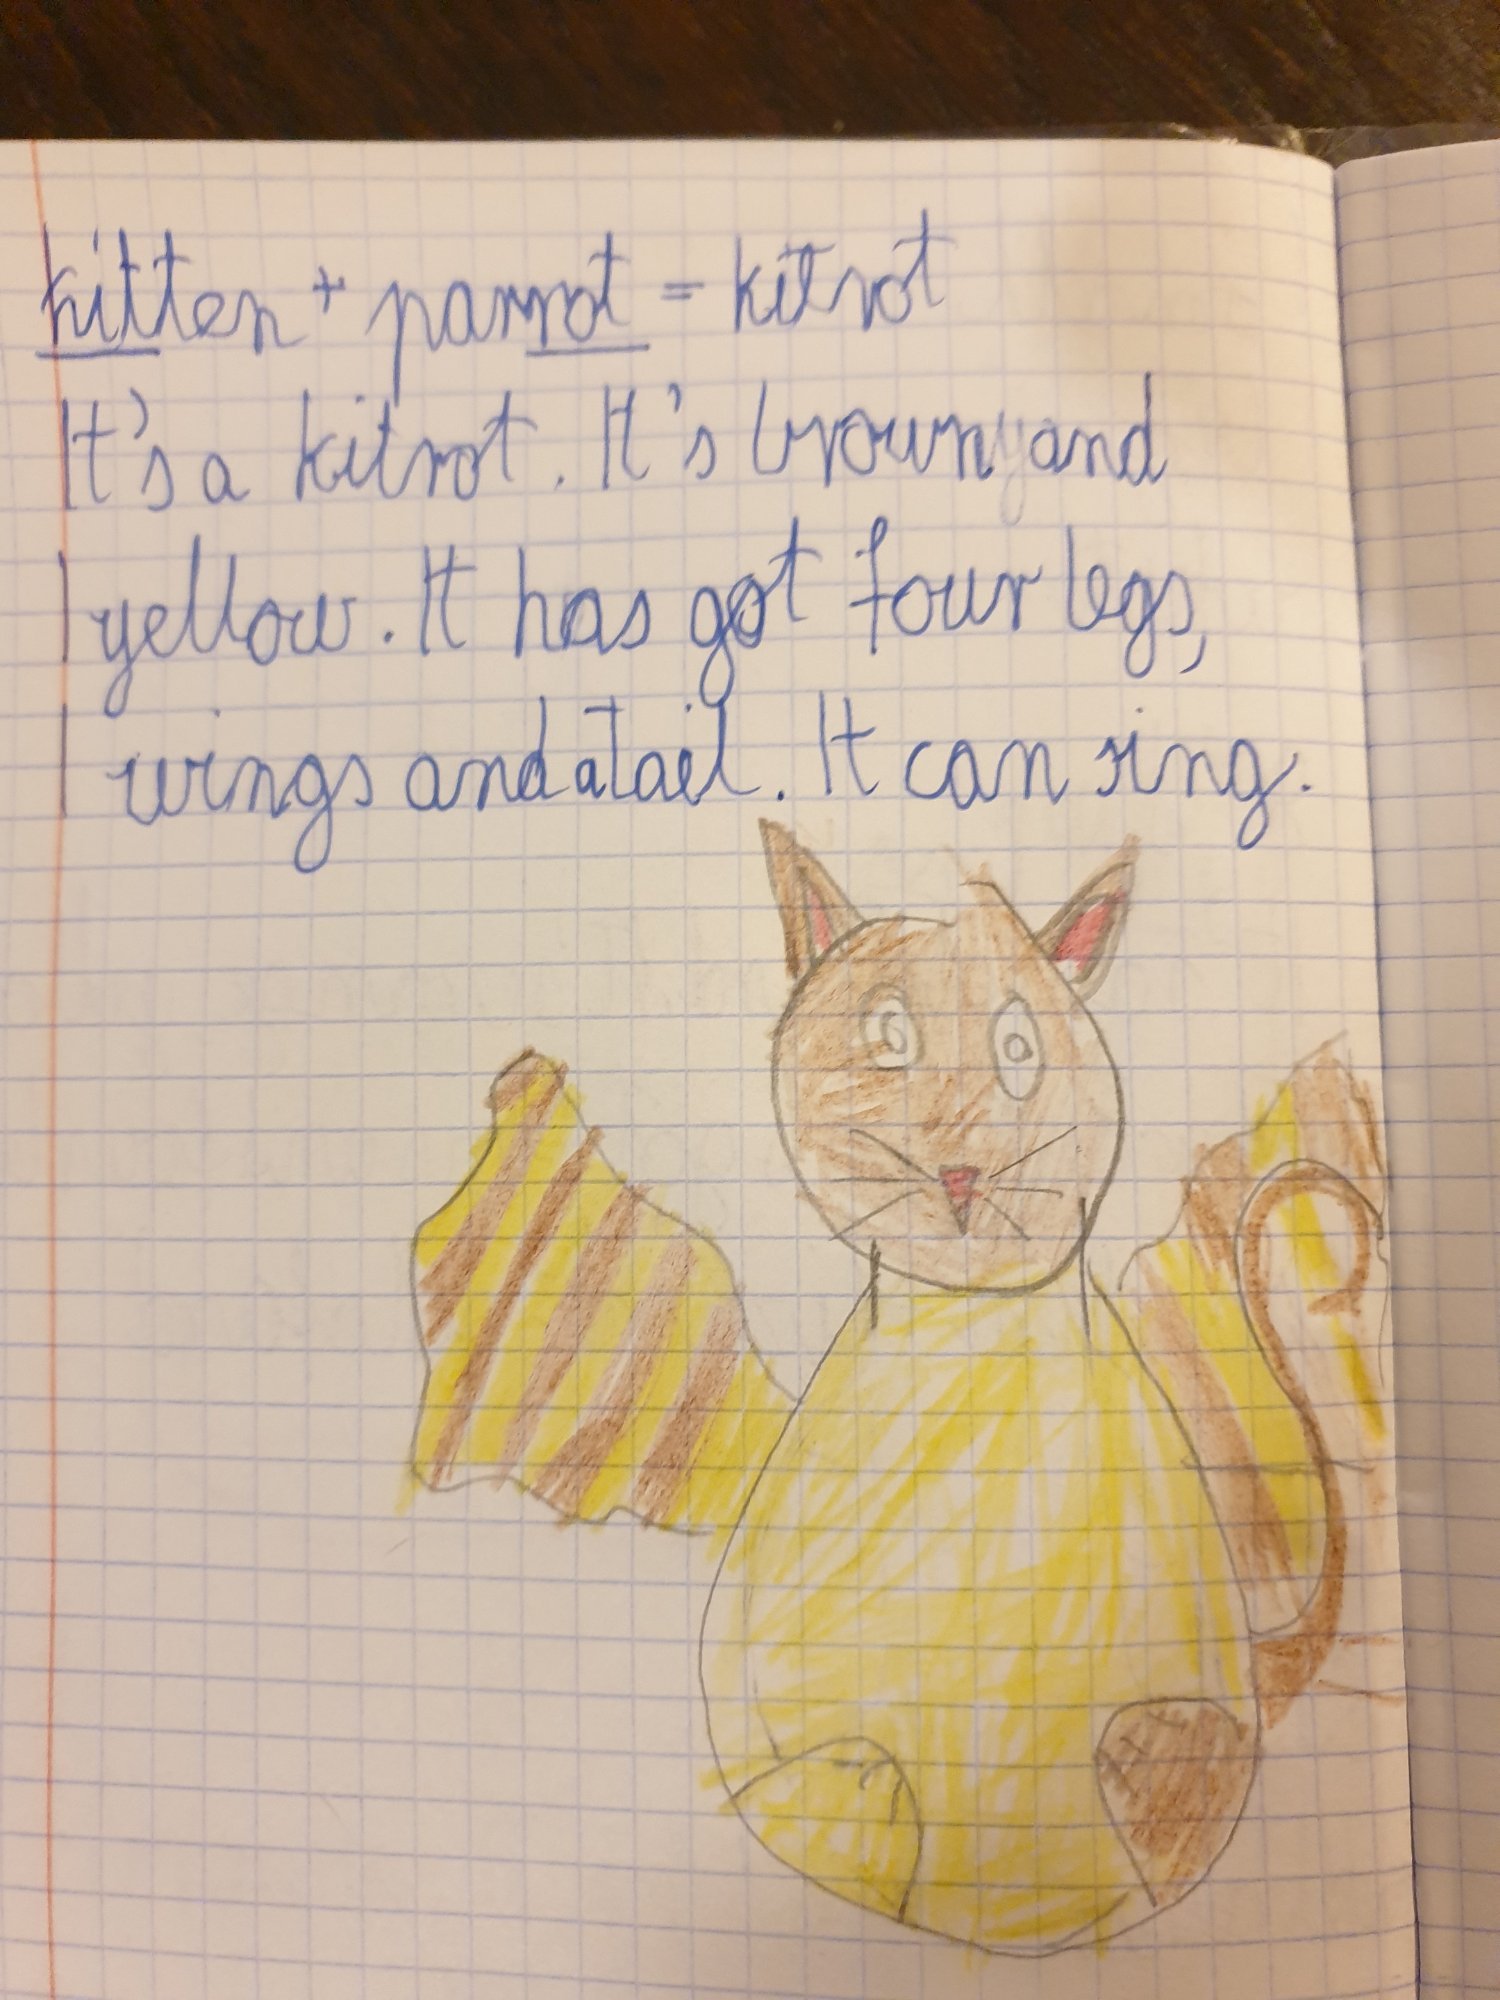 kitten + parrot = kitrot
It's a kitrot. It's brown and
yellow. It has got four legs,
wings and a tail. It can sing.